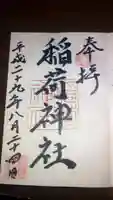 奉拝
稲荷神社
平成二十九年八月二十四日